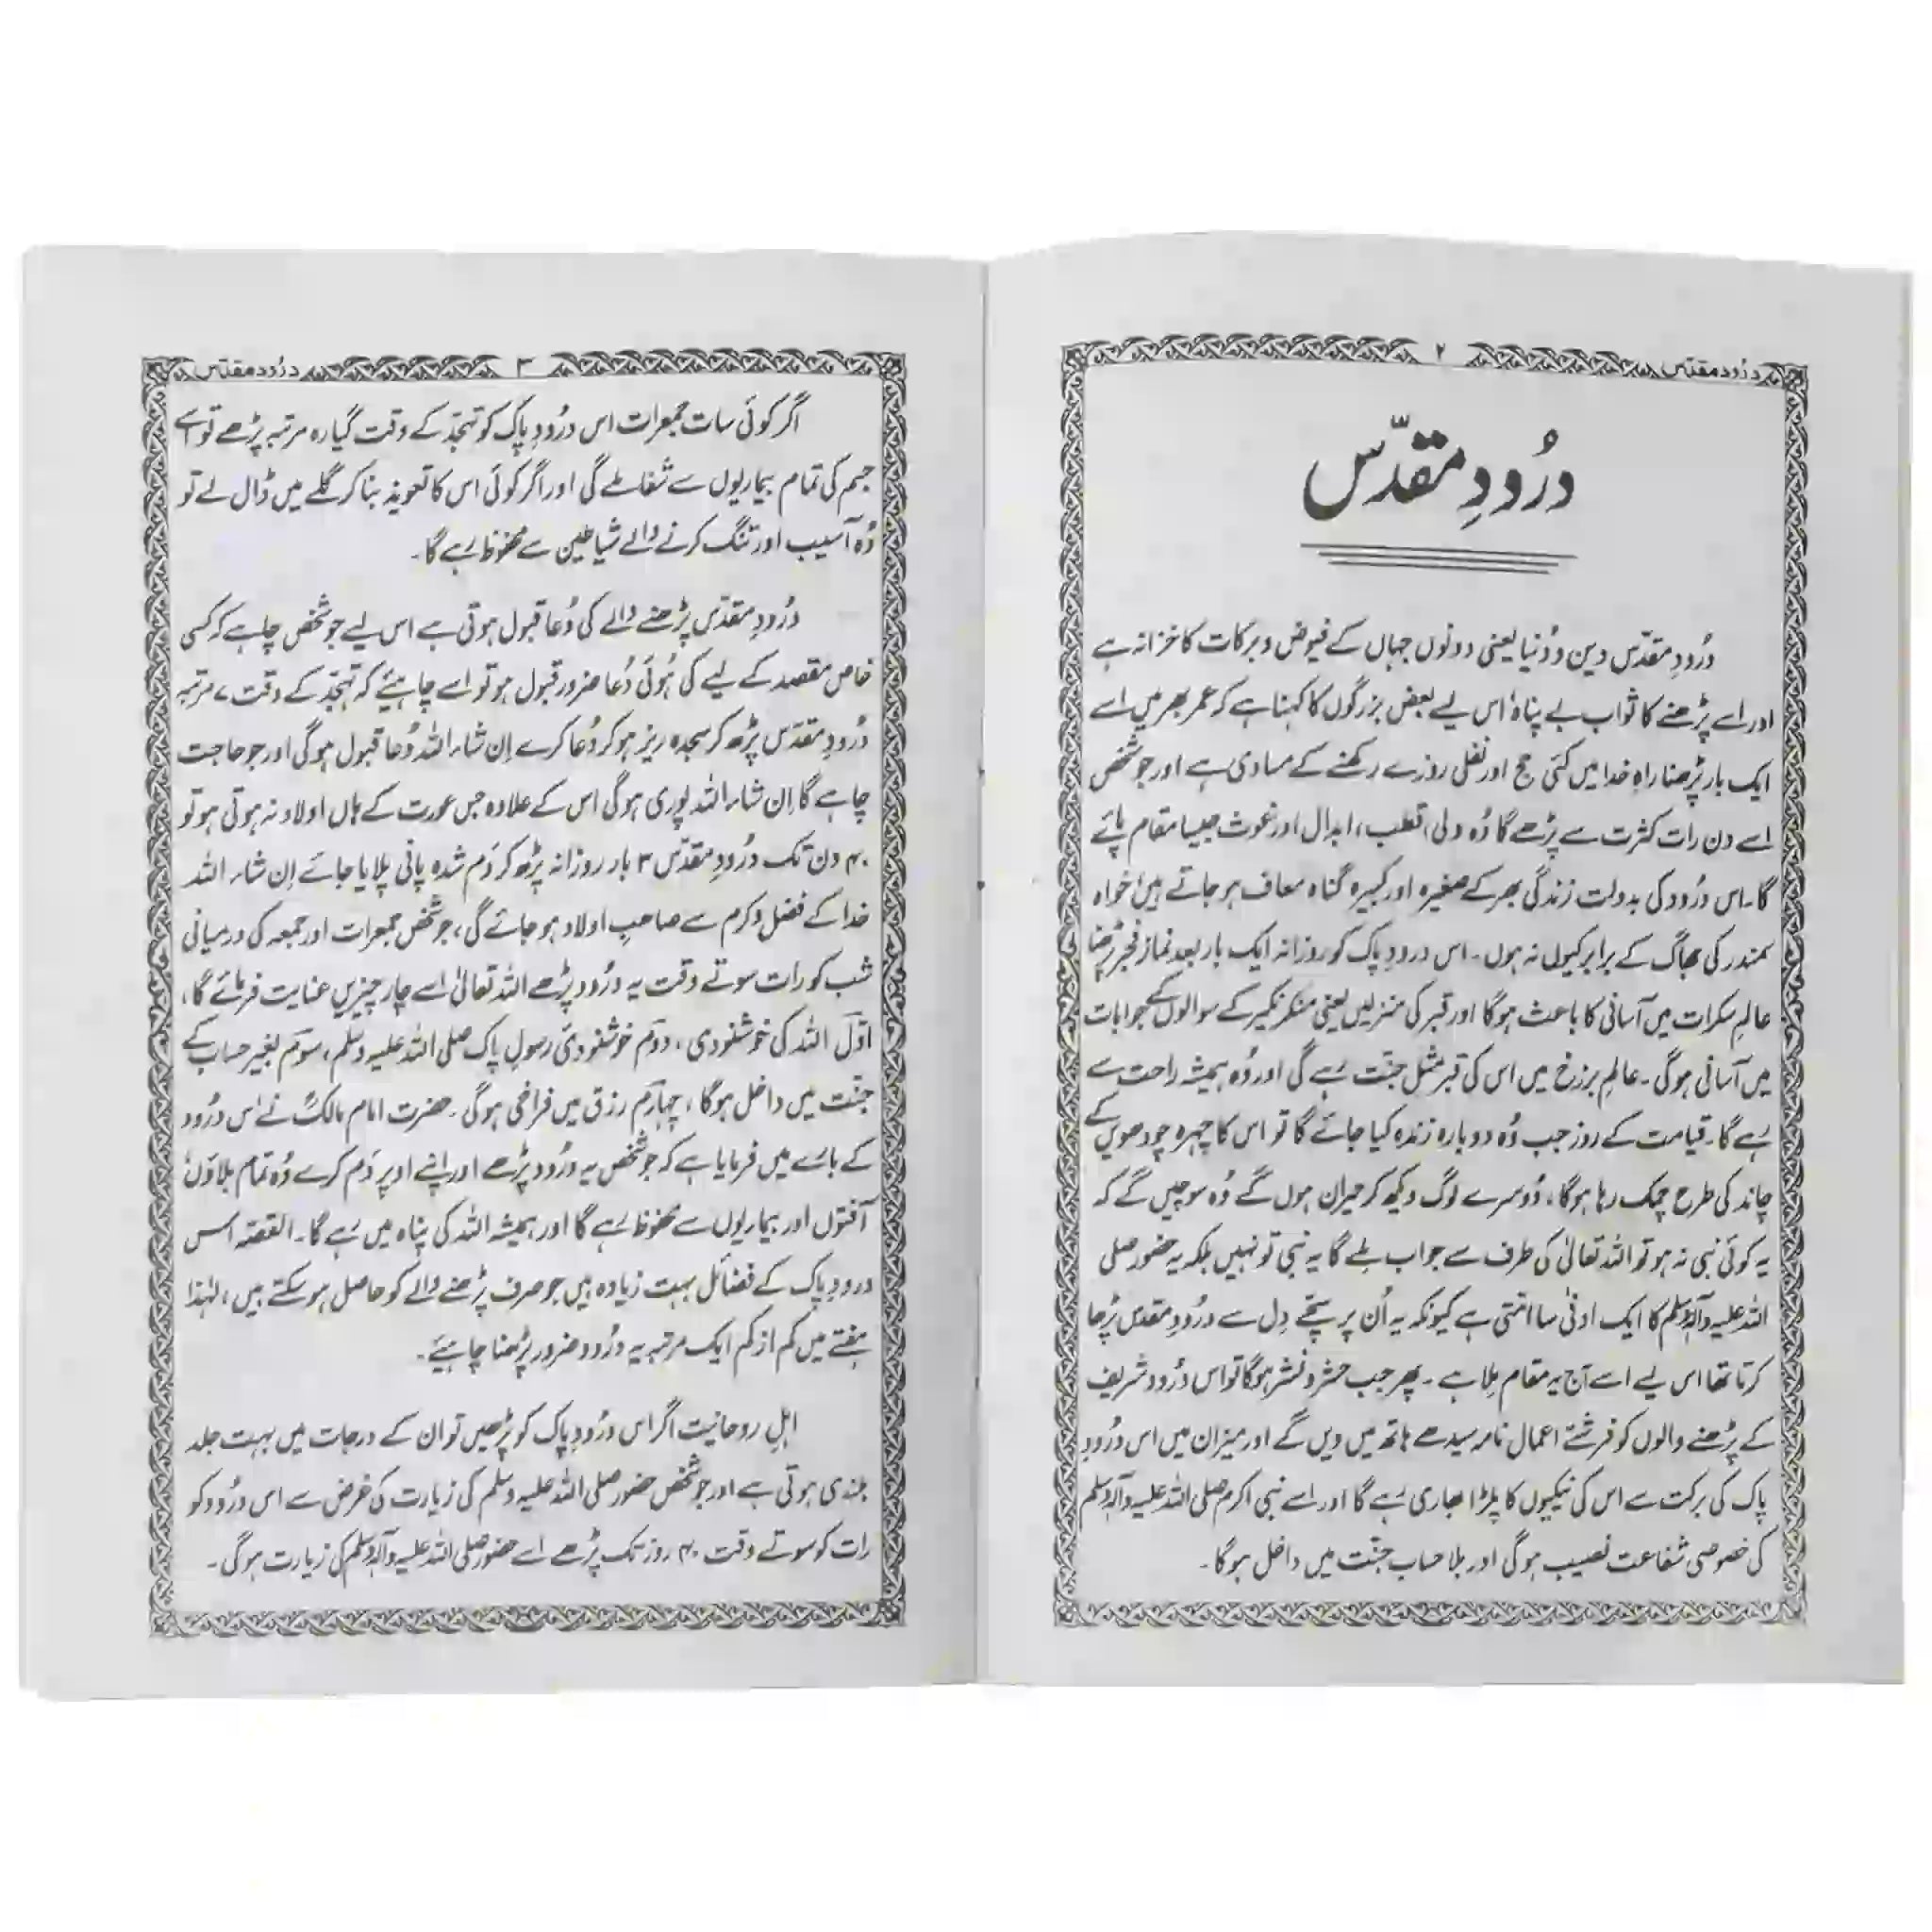 ۲
درُود مقدّس
درُودِ مقدّس
درُودِ مقدّس دین و دُنیا یعنی دونوں جہاں کے فیوض و برکات کا خزانہ ہے
اور اسے پڑھنے کا ثواب بے پناہ اس لیے بعض بزرگوں کا کہنا ہے کہ عمر بھر میں اسے
ایک بار پڑھنا راہِ خدا میں کئی حج اور نفلی روزے رکھنے کے مساوی ہے اور جو شخص
اسے دن رات کثرت سے پڑھے گا وُہ ولی، قطب، ابدال اور غوث جیسا مقام پائے
گا۔ اس درُود کی بدولت زندگی بھر کے صغیرہ اور کبیرہ گناہ معاف ہو جاتے ہیں خواہ
سمندر کی جھاگ کے برابر کیوں نہ ہوں۔ اس درودِ پاک کو روزانہ ایک بار بعد نماز فجر پڑھنا
عالمِ سکرات میں آسانی کا باعث ہوگا اور قبر کی منزلیں یعنی منکر نکیر کے سوالوں کے جوابات
میں آسانی ہوگی۔ عالمِ برزخ میں اس کی قبر مثل جنّت رہے گی اور وُہ ہمیشہ راحت سے
رہے گا۔ قیامت کے روز جب وُہ دوبارہ زندہ کیا جائے گا تو اس کا چہرہ چودھویں کے
چاند کی طرح چمک رہا ہوگا، دُوسرے لوگ دیکھ کر حیران ہوں گے وُہ سوچیں گے کہ
یہ کوئی نبی نہ ہو تو اللہ تعالیٰ کی طرف سے جواب ملے گا یہ نبی تو نہیں بلکہ یہ حضور صلی
اللہ علیہ وآلہٖ وسلم کا ایک ادنیٰ سا امتی ہے کیونکہ یہ اُن پر سچّے دِل سے درُودِ مقدّس پڑھا
کرتا تھا اس لیے اسے آج یہ مقام مِلا ہے۔ پھر جب حشر و نشر ہوگا تو اس درُود شریف
کے پڑھنے والوں کو فرشتے اعمال نامہ سیدھے ہاتھ میں دیں گے اور میزان میں اس درُودِ
پاک کی برکت سے اس کی نیکیوں کا پلڑا بھاری رہے گا اور اسے نبی اکرم صلی اللہ علیہ وآلہٖ وسلم
کی خصوصی شفاعت نصیب ہوگی اور بلا حساب جنّت میں داخل ہوگا۔
۳
درُود مقدّس
اگر کوئی سات جمعرات اس درُودِ پاک کو تہجّد کے وقت گیارہ مرتبہ پڑھے تو اسے
جسم کی تمام بیماریوں سے شفا ملے گی اور اگر کوئی اس کا تعویذ بنا کر گلے میں ڈال لے تو
وُہ آسیب اور تنگ کرنے والے شیاطین سے محفوظ رہے گا۔
درُودِ مقدّس پڑھنے والے کی دُعا قبول ہوتی ہے اس لیے جو شخص چاہے کہ کسی
خاص مقصد کے لیے کی ہُوئی دُعا ضرور قبول ہو تو اسے چاہیئے کہ تہجّد کے وقت ۷ مرتبہ
درُودِ مقدّس پڑھ کر سجدہ ریز ہو کر دُعا کرے اِن شاء اللہ دُعا قبول ہوگی اور جو حاجت
چاہے گا اِن شاء اللہ پوری ہوگی اس کے علاوہ جس عورت کے ہاں اولاد نہ ہوتی ہو تو
۴۰ دن تک درُودِ مقدّس ۳ بار روزانہ پڑھ کر دَم شدہ پانی پلایا جائے اِن شاء اللہ
خدا کے فضل و کرم سے صاحبِ اولاد ہو جائے گی، جو شخص جمعرات اور جمعہ کی درمیانی
شب کو رات سوتے وقت یہ درُود پڑھے اللہ تعالیٰ اسے چار چیزیں عنایت فرمائے گا،
اوّل اللہ کی خوشنودی، دوم خوشنودیٔ رسولِ پاک صلی اللہ علیہ وسلم، سوم بغیر حساب کے
جنّت میں داخل ہوگا، چہارم رزق میں فراخی ہوگی۔ حضرت امام مالکؒ نے اس درُود
کے بارے میں فرمایا ہے کہ جو شخص یہ درُود پڑھے اور اپنے اوپر دَم کرے وُہ تمام بلاؤں
آفتوں اور بیماریوں سے محفوظ رہے گا اور ہمیشہ اللہ کی پناہ میں رہے گا۔ القصّہ اس
درودِ پاک کے فضائل بہت زیادہ ہیں جو صرف پڑھنے والے کو حاصل ہو سکتے ہیں، لہٰذا
ہفتے میں کم از کم ایک مرتبہ یہ درُود ضرور پڑھنا چاہیئے۔
اہلِ روحانیت اگر اس درُودِ پاک کو پڑھیں تو ان کے درجات میں بہت جلد
بلندی ہوتی ہے اور جو شخص حضور صلی اللہ علیہ وسلم کی زیارت کی غرض سے اس درُود کو
رات کو سوتے وقت ۴۰ روز تک پڑھے اسے حضور صلی اللہ علیہ وآلہٖ وسلم کی زیارت ہوگی۔